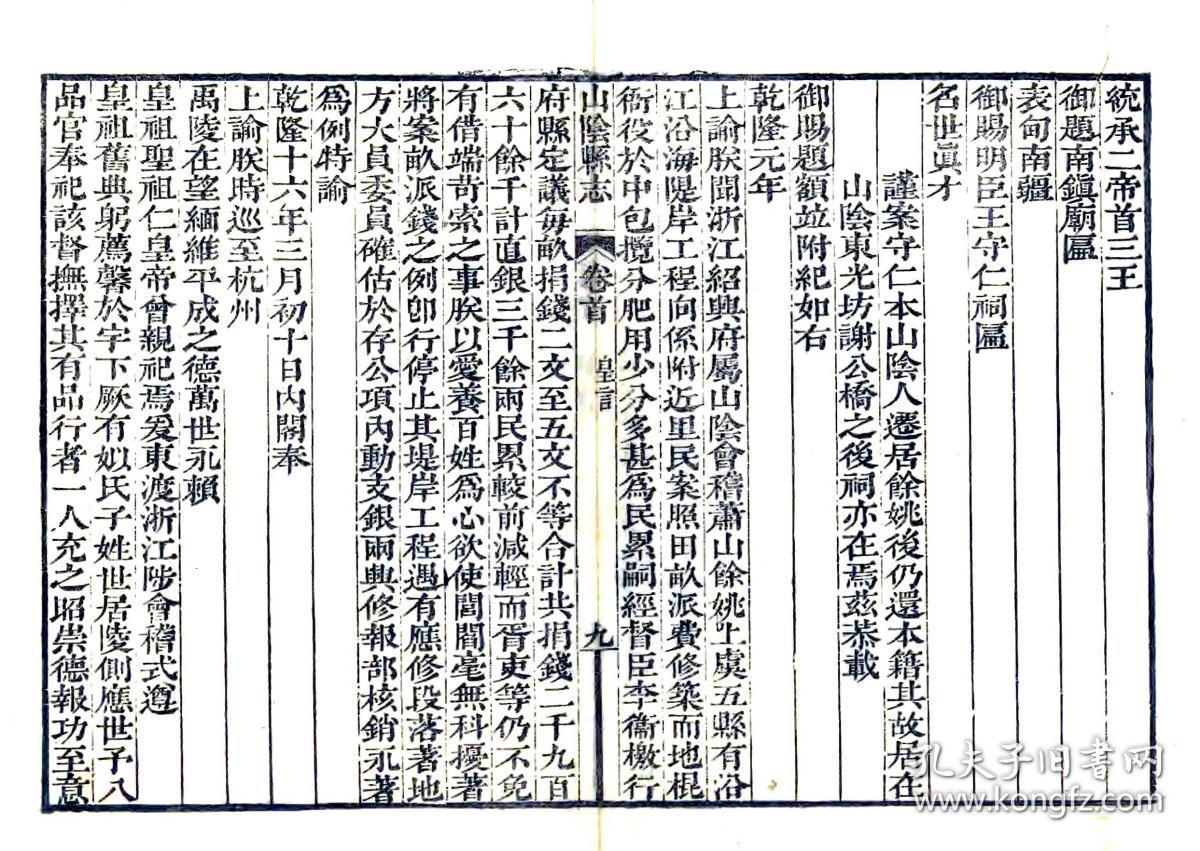 統承二帝首三王
御題南鎮廟匾
表甸南疆
御賜明臣王守仁祠匾
名世眞才
謹案守仁本山陰人遷居餘姚後仍還本籍其故居在
山陰東光坊謝公橋之後祠亦在焉茲恭載
御賜題額竝附紀如右
乾隆元年
上諭朕聞浙江紹興府屬山陰會稽蕭山餘姚上虞五縣有沿
江沿海隄岸工程向係附近里民案照田畝派費修築而地棍
衙役於中包攬分肥用少分多甚爲民累嗣經督臣李衞檄行
山陰縣志 卷首 皇言 九
府縣定議每畝捐錢二文至五文不等合計共捐錢二千九百
六十餘千計直銀三千餘兩民累較前減輕而胥吏等仍不免
有借端苛索之事朕以愛養百姓爲心欲使閭閻毫無科擾著
將案畝派錢之例卽行停止其堤岸工程遇有應修段落著地
方大員委員確估於存公項內動支銀兩興修報部核銷永著
爲例特諭
乾隆十六年三月初十日內閣奉
上諭朕時巡至杭州
禹陵在望緬維平成之德萬世永賴
皇祖聖祖仁皇帝曾親祀焉爰東渡浙江陟會稽式遵
皇祖舊典躬薦馨於宇下厥有姒氏子姓世居陵側應世予八
品官奉祀該督撫擇其有品行者一人充之昭崇德報功至意
孔夫子旧书网
www.kongfz.com